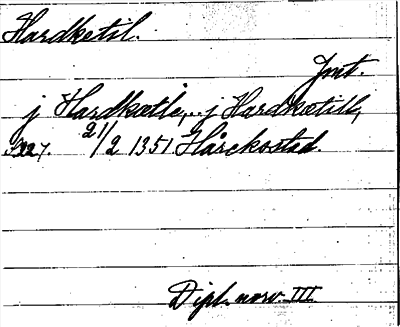 Hardketil.
Jmt.
j Hardkætle, .. j Hardkætill,
227. 21/2 1351 Hårekstad.
Dipl. norv. III